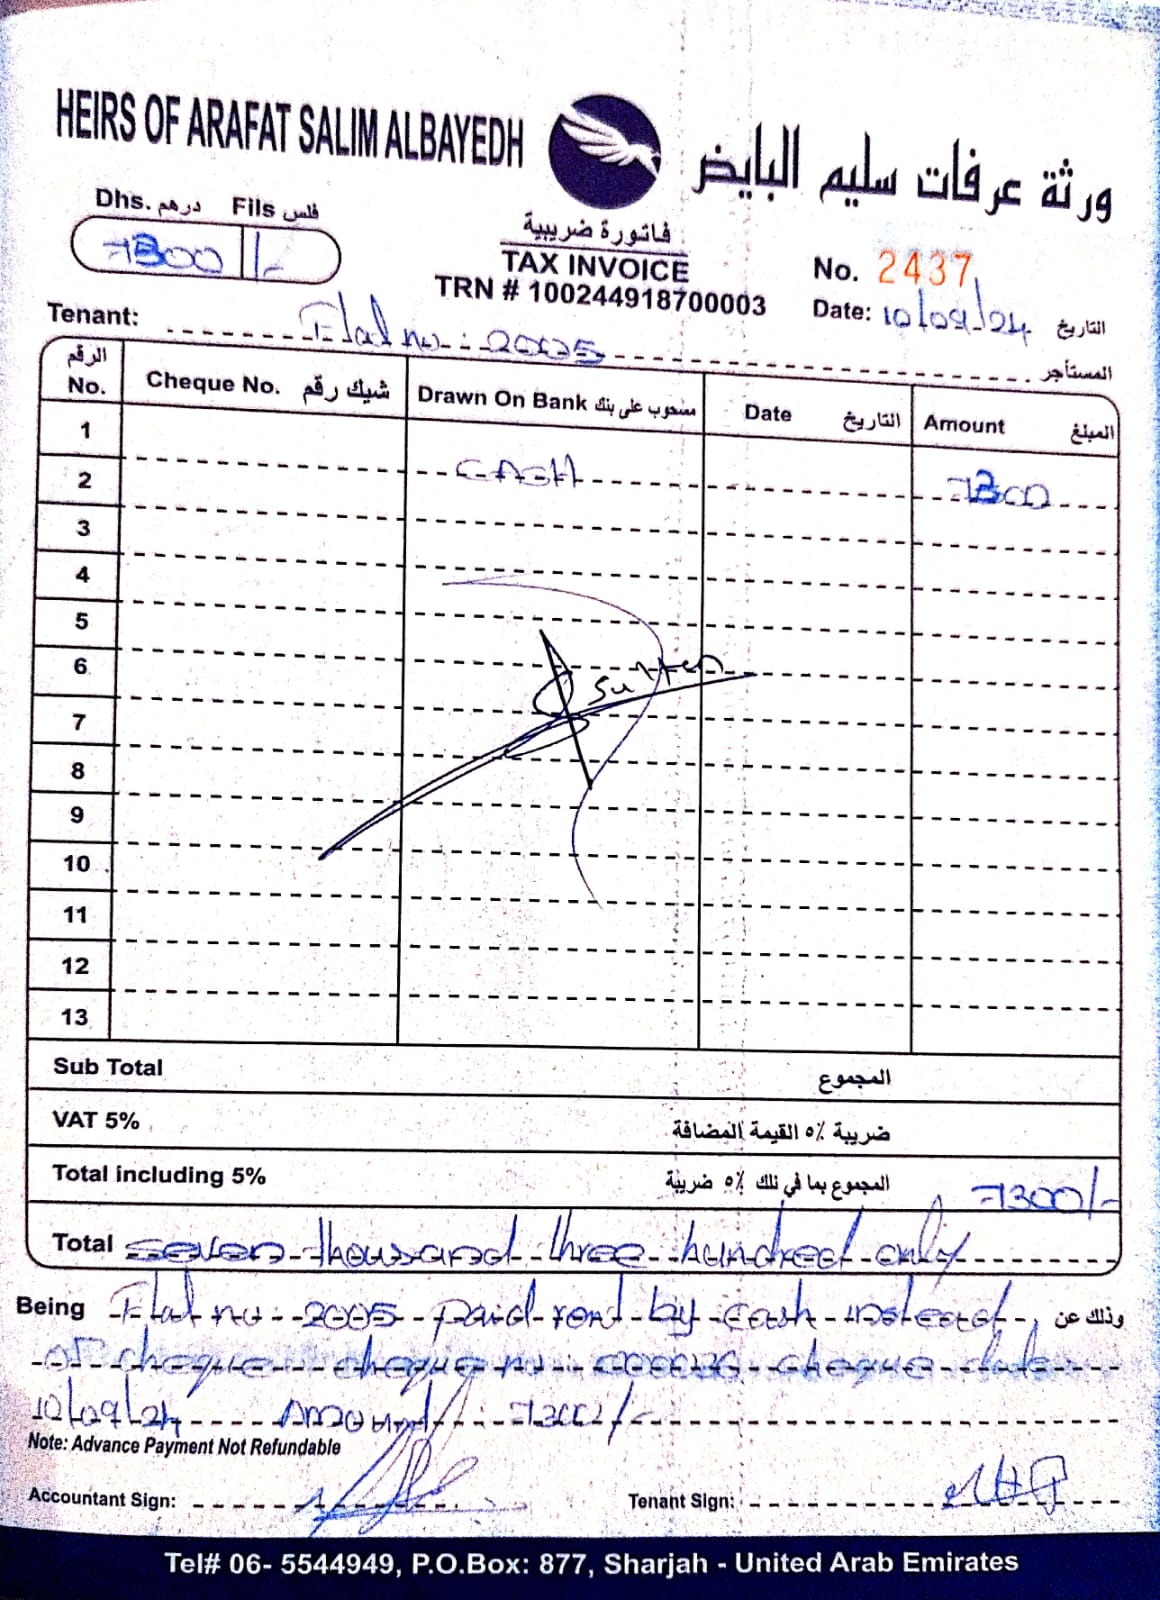 HEIRS OF ARAFAT SALIM ALBAYEDH
ورثة عرفات سليم البايض
Dhs. درهم Fils فلس
7300 /-
فاتورة ضريبية
TAX INVOICE
TRN # 100244918700003
No. 2437
Date: 10/09/24 التاريخ
Tenant: Flat no: 2005 المستأجر
الرقم No. Cheque No. شيك رقم Drawn On Bank مسحوب على بنك Date التاريخ Amount المبلغ
1
2 CASH 7300
3
4
5
6
7
8
9
10
11
12
13
Sub Total المجموع
VAT 5% ضريبة ٥% القيمة المضافة
Total including 5% المجموع بما في ذلك ٥% ضريبة 7300/-
Total seven thousand three hundred only
Being Flat no: 2005 paid rent by cash instead وذلك عن
of cheque cheque no: 000026 cheque date
10/09/24 Amount: 7300/-
Note: Advance Payment Not Refundable
Accountant Sign: Tenant Sign:
Tel# 06- 5544949, P.O.Box: 877, Sharjah - United Arab Emirates